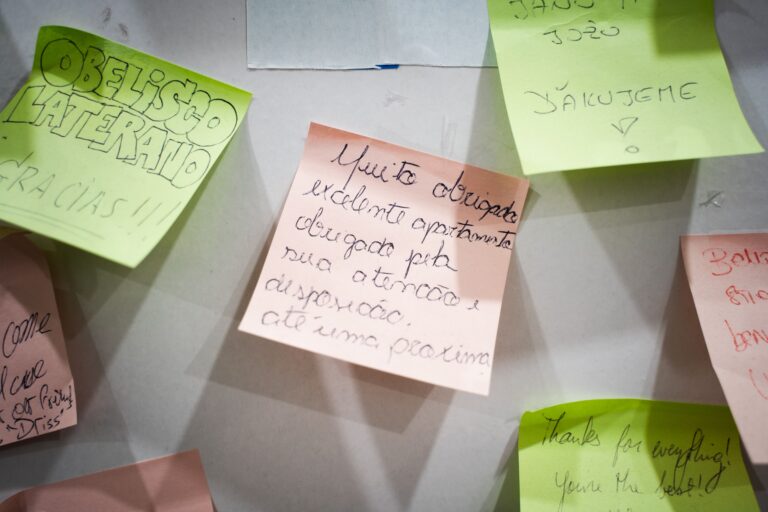 OBELISCO
LATERANO
GRACIAS!!!
JOŽO
ĎAKUJEME
!
Muito obrigada
excelente apartamento
obrigada pela
sua atencão e
disposicão.
até uma proxima
come
Driss"
Thanks for everything!
You're the best!